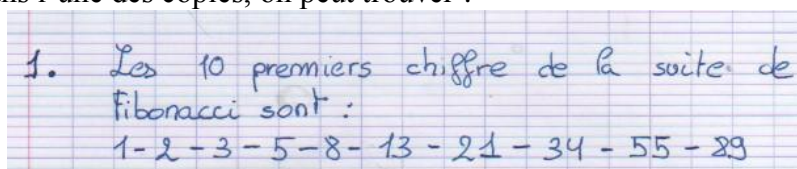 ans l'une des copies, on peut trouver :
1. Les 10 premiers chiffre de la suite de
Fibonacci sont :
1-2-3-5-8-13-21-34-55-89